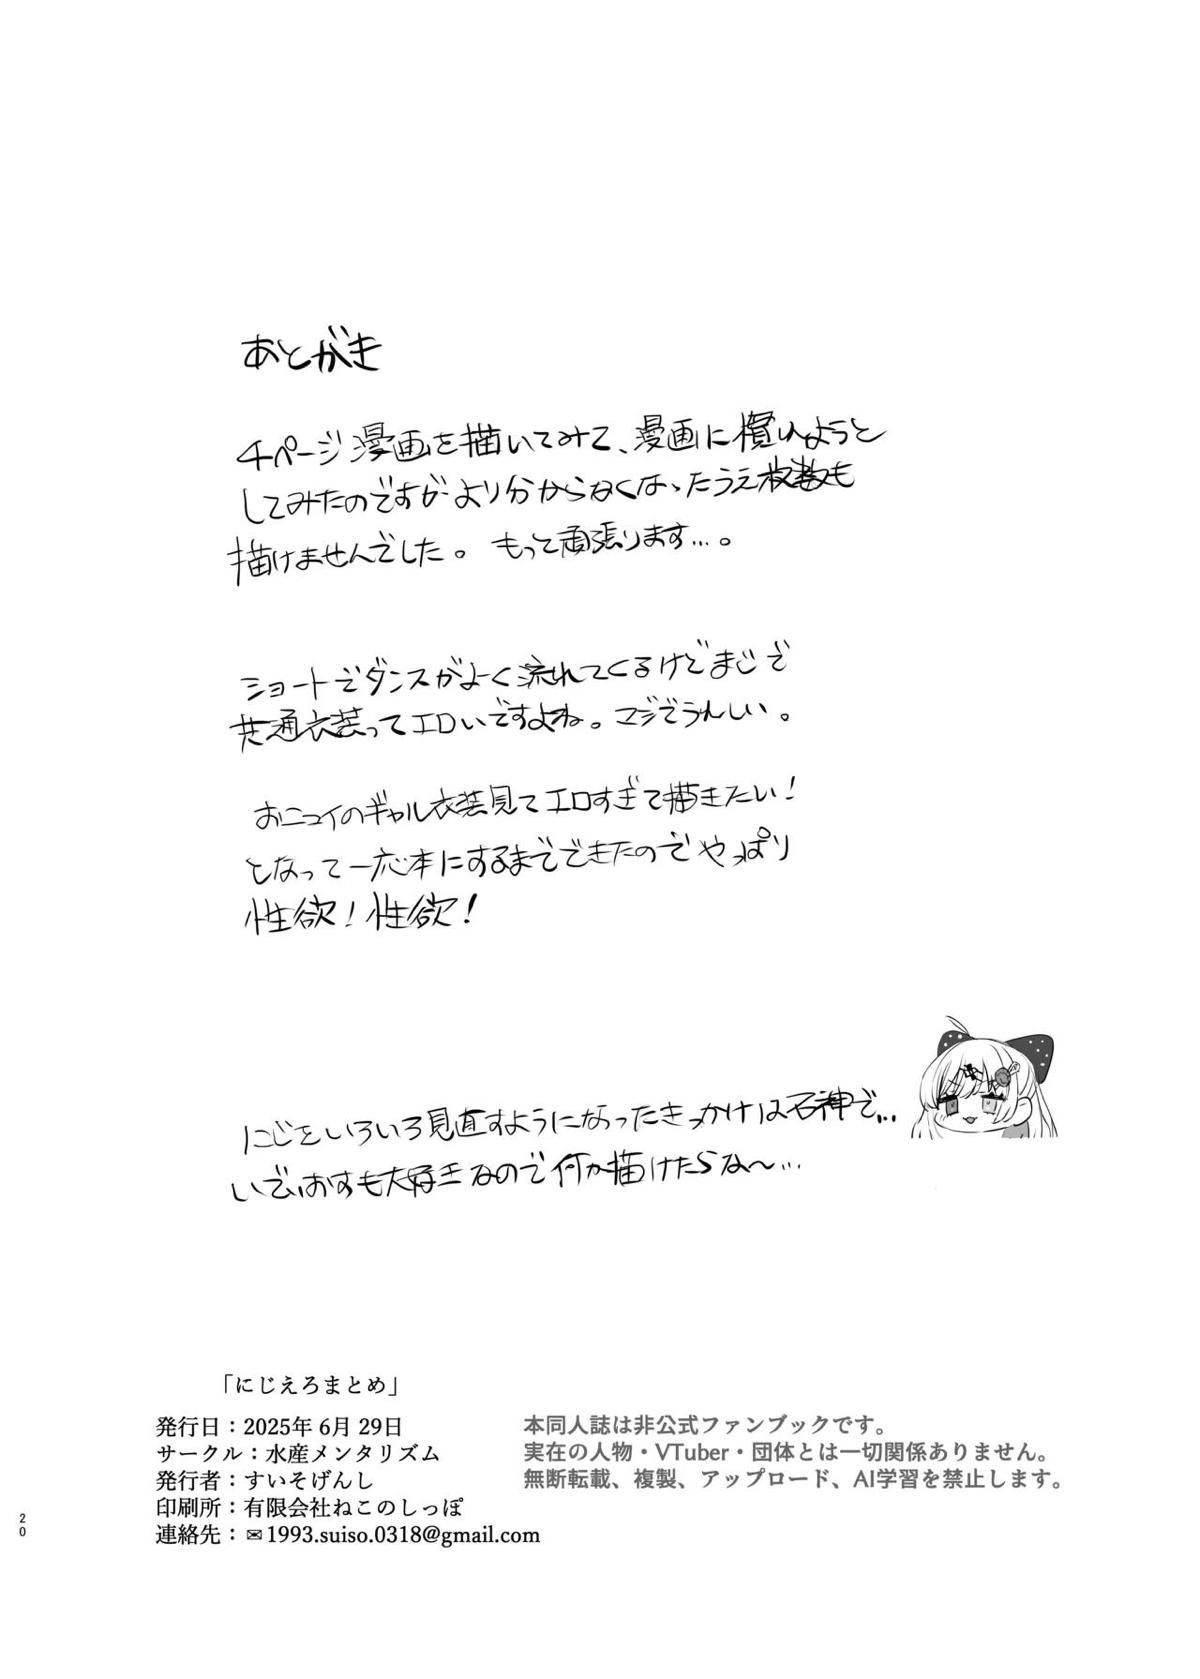 あとがき
4ページ漫画を描いてみて、漫画に慣れようと
してみたのですがより分からなくなったうえ枚数も
描けませんでした。もっと頑張ります…。
ショートでダンスがよく流れてくるけどまじで
共通衣装ってエロいですよね。マジでうれしい。
おニュイのギャル衣装見てエロすぎて描きたい!
となって一応本にするまでできたのでやっぱり
性欲!性欲!
にじをいろいろ見直すようになったきっかけは石神で…
いでぃおすも大好きなので何か描けたらな～…
「にじえろまとめ」
発行日：2025年 6月 29日
サークル：水産メンタリズム
発行者：すいそげんし
印刷所：有限会社ねこのしっぽ
連絡先：✉1993.suiso.0318@gmail.com
本同人誌は非公式ファンブックです。
実在の人物・VTuber・団体とは一切関係ありません。
無断転載、複製、アップロード、AI学習を禁止します。
20